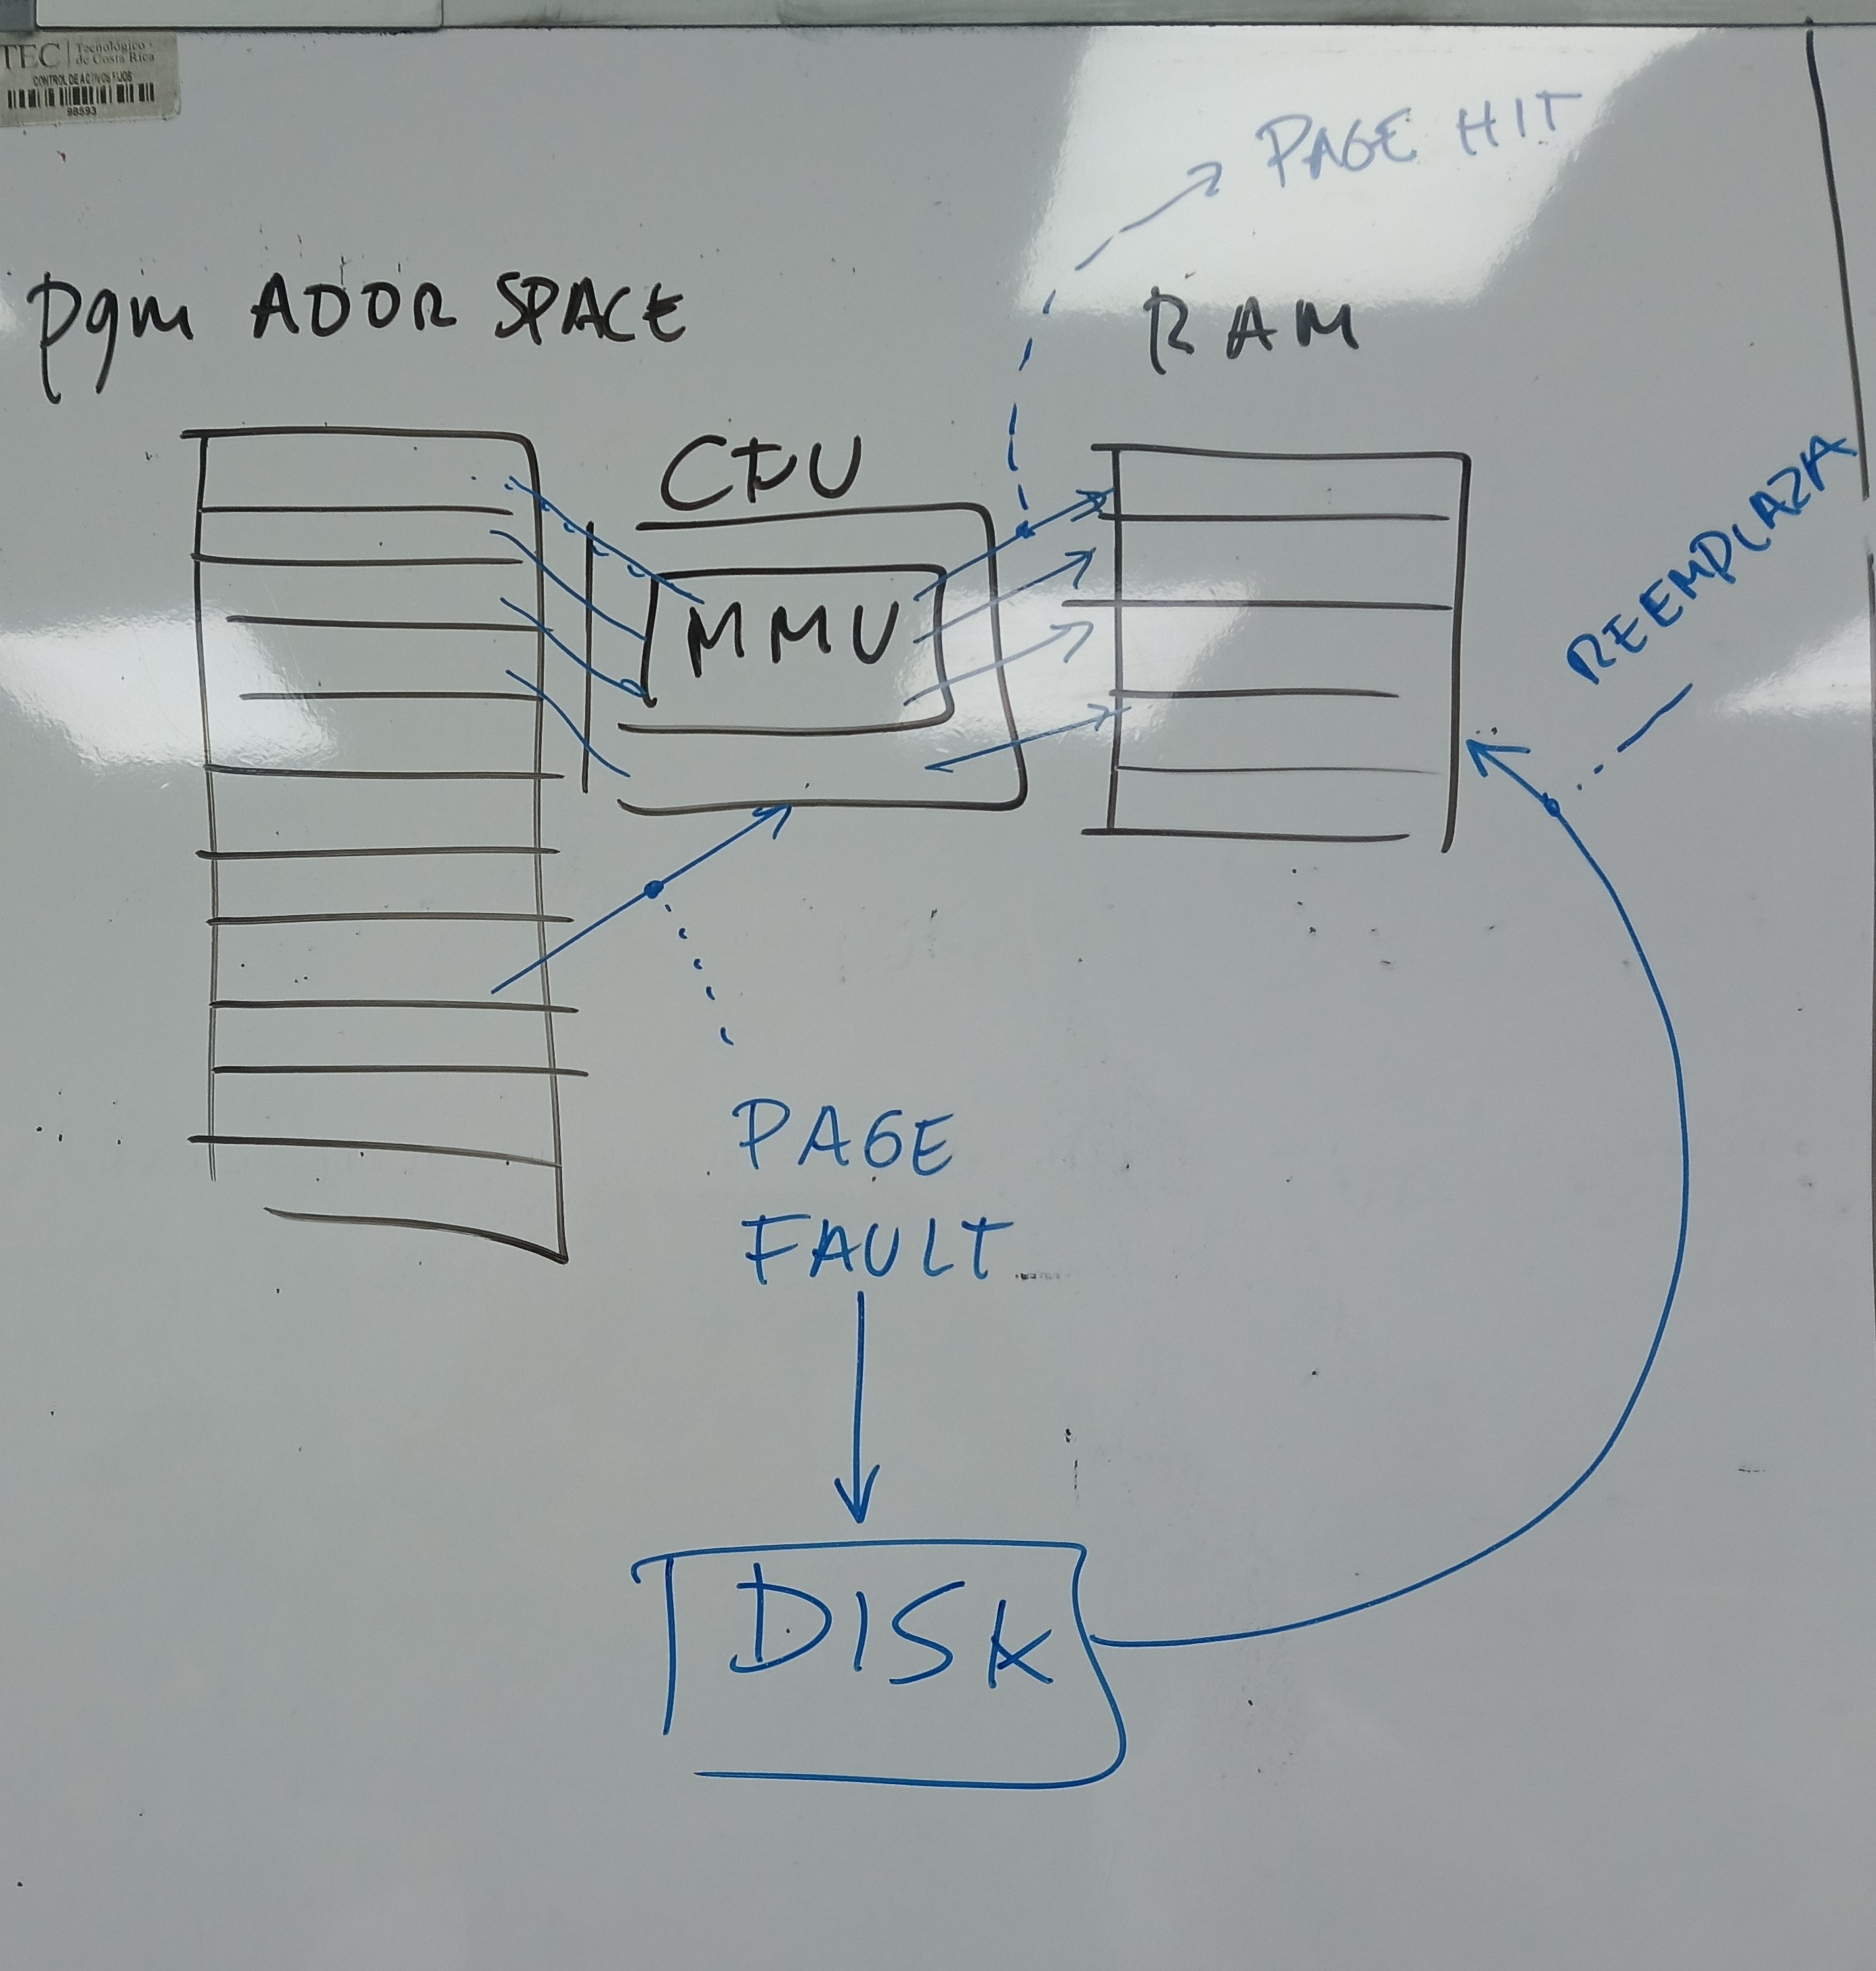 TEC Tecnológico
de Costa Rica
CONTROL DE ACTIVOS FIJOS
98593
PAGE HIT
pgm ADDR SPACE
RAM
CPU
MMU
REEMPLAZA
PAGE
FAULT
DISK